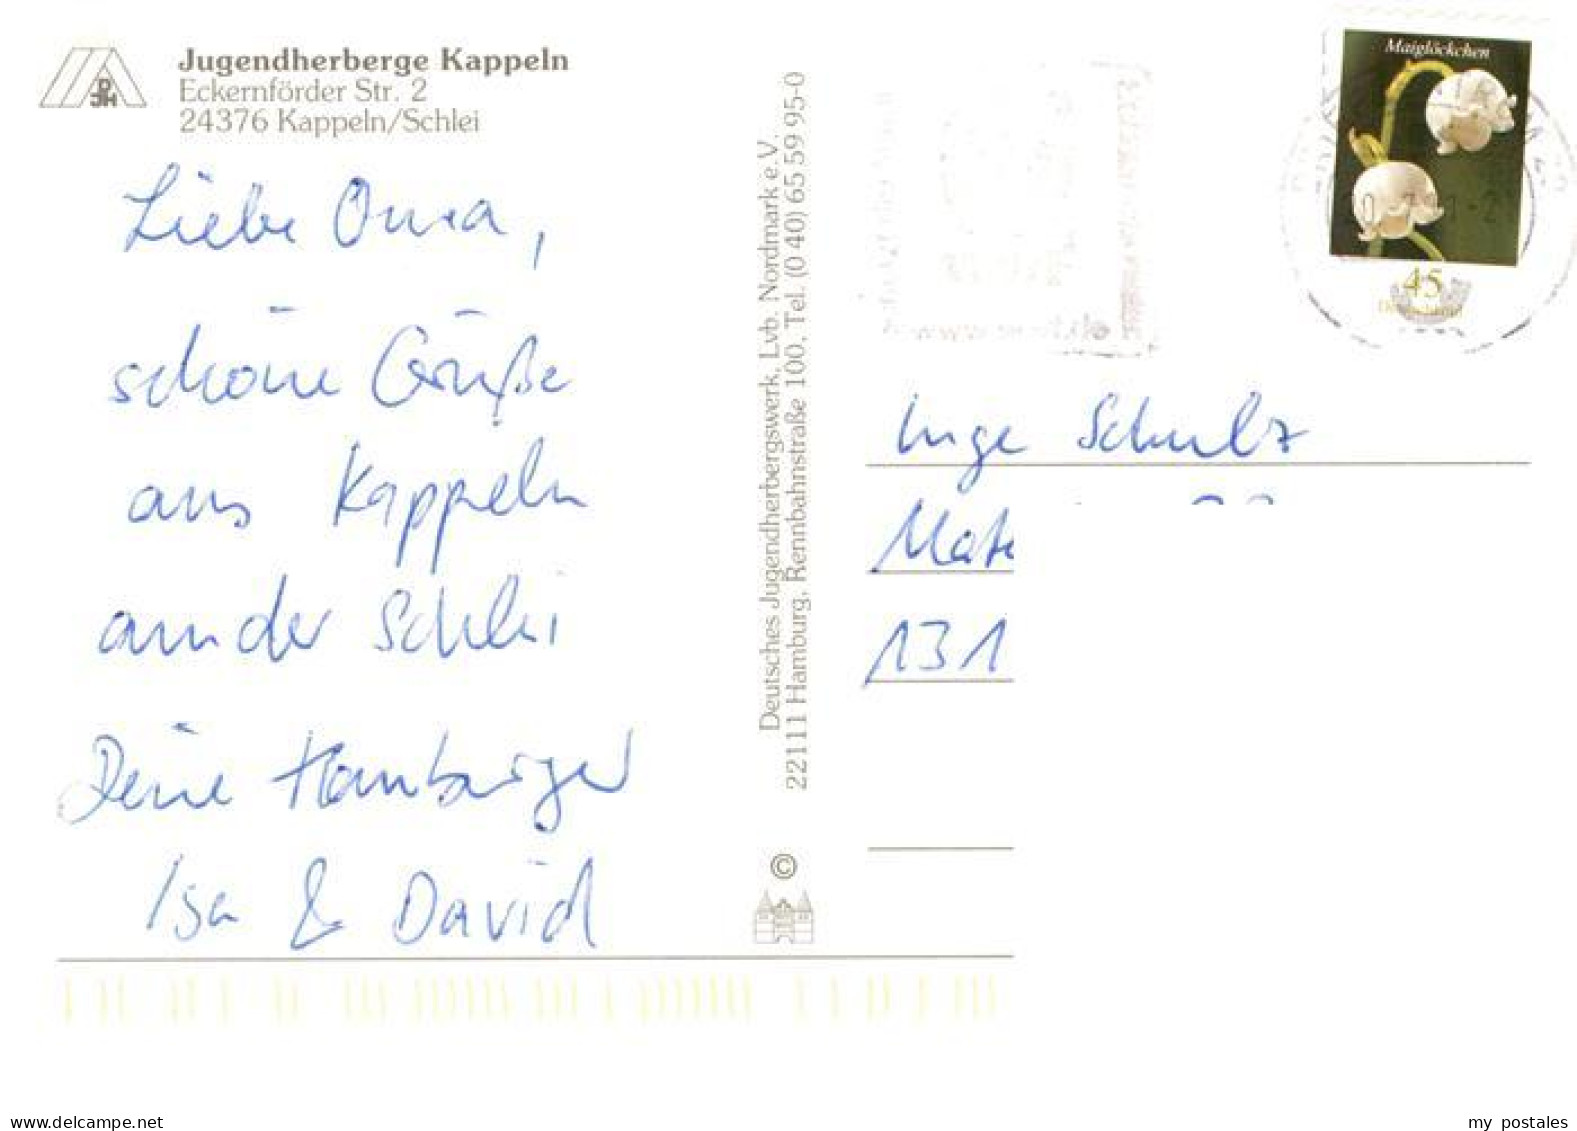 Jugendherberge Kappeln
Eckernförder Str. 2
24376 Kappeln/Schlei
Liebe Oma,
schöne Grüße
aus Kappeln
an der Schlei
Deine Hamburger
Isa & David
Deutsches Jugendherbergswerk, Lvb. Nordmark e.V.
22111 Hamburg, Rennbahnstraße 100, Tel. (0 40) 65 59 95-0
©
Maiglöckchen
45
Inge Schulz
131
delcampe.net
my postales